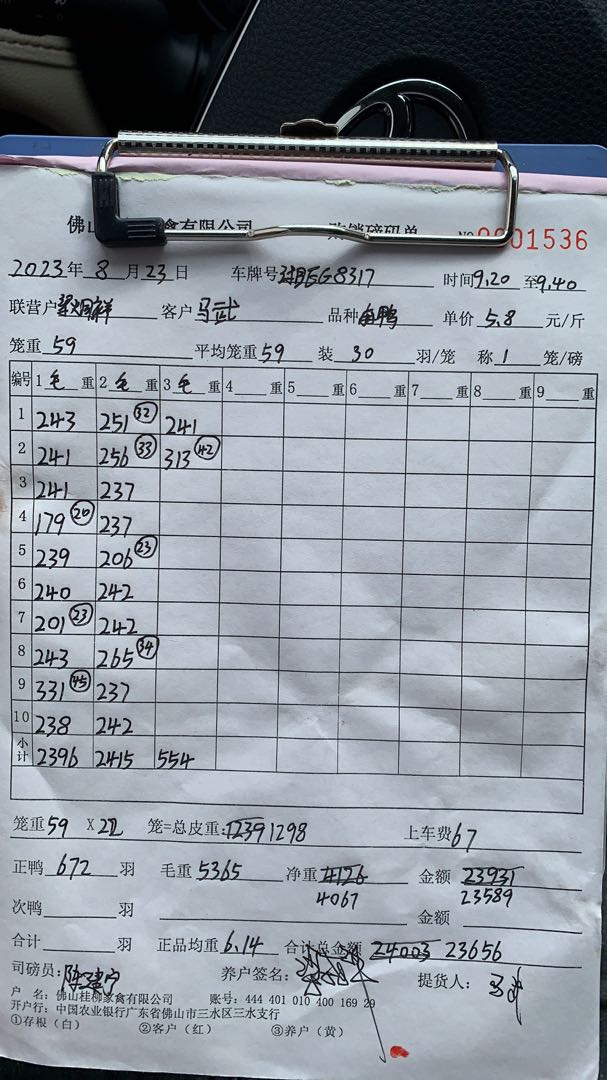 佛山 禽有限公司 购销磅码单 NO 0001536
2023年 8 月 23 日 车牌号 G8317 时间 9.20 至 9.40
联营户 祥 客户 马武 品种 鸭 单价 5.8 元/斤
笼重 59 平均笼重 59 装 30 羽/笼 称 1 笼/磅
编号 1 毛 重 2 毛 重 3 毛 重 4 重 5 重 6 重 7 重 8 重 9 重
1 243 251 32 241
2 241 256 33 313 42
3 241 237
4 179 20 237
5 239 206 23
6 240 242
7 201 23 242
8 243 265 34
9 331 45 237
10 238 242
小计 2396 2415 554
笼重 59 X 22 笼=总皮重: 1239 1298 上车费 67
正鸭 672 羽 毛重 5365 净重 4126 金额 23931
4067 23589
次鸭 羽 金额
合计 羽 正品均重 6.14 合计总金额 24003 23656
司磅员: 陈建宁 养户签名: 提货人:
户 名: 佛山桂柳家禽有限公司 账号: 444 401 010 400 169 29
开户行: 中国农业银行广东省佛山市三水区三水支行
①存根（白） ②客户（红） ③养户（黄）